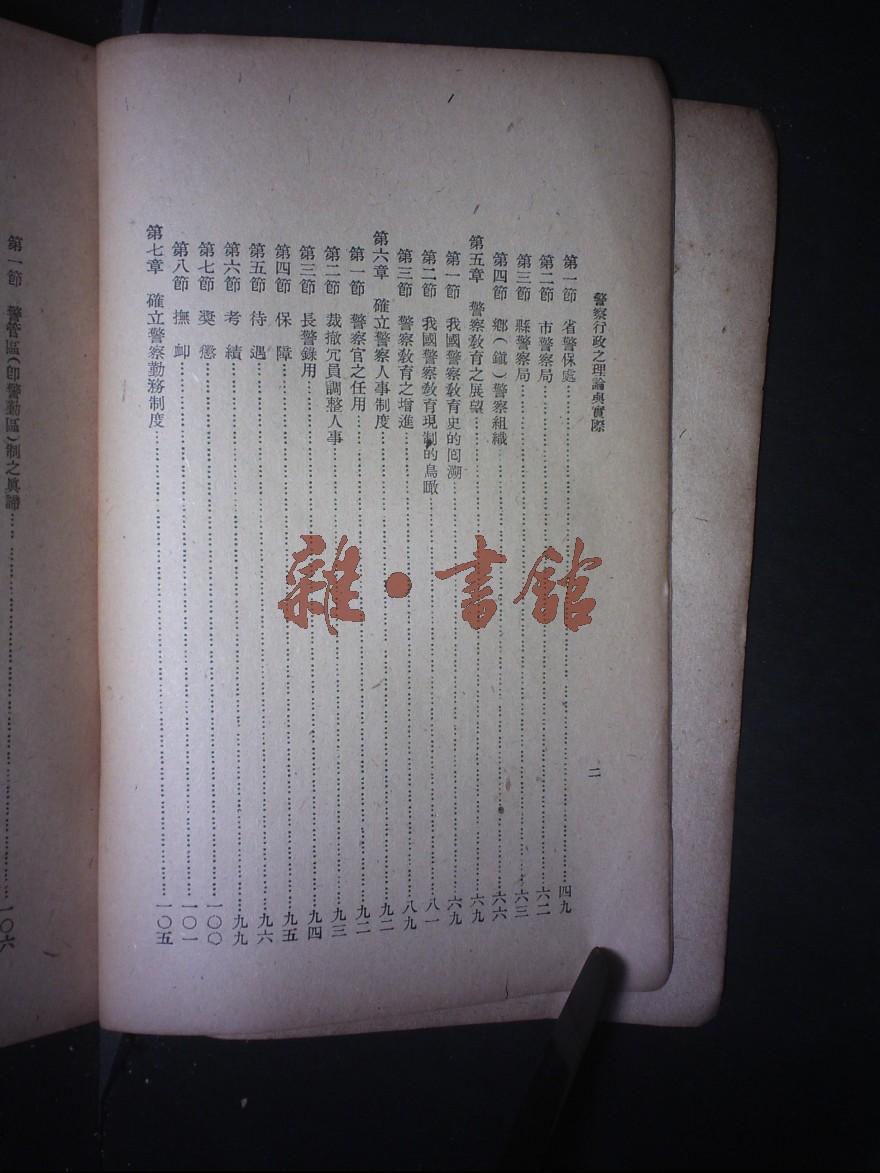 警察行政之理論與實際
二
第一節　省警保處……四九
第二節　市警察局……六二
第三節　縣警察局……六三
第四節　鄉(鎭)警察組織……六六
第五章　警察敎育之展望……六九
第一節　我國警察敎育史的囘溯……六九
第二節　我國警察敎育現制的鳥瞰……八一
第三節　警察敎育之增進……八九
第六章　確立警察人事制度……九二
第一節　警察官之任用……九二
第二節　裁撤冗員調整人事……九三
第三節　長警錄用……九四
第四節　保障……九五
第五節　待遇……九六
第六節　考績……九九
第七節　獎懲……一〇〇
第八節　撫卹……一〇一
第七章　確立警察勤務制度……一〇五
第一節　警管區(卽警勤區)制之眞諦……一〇六
雜·書館